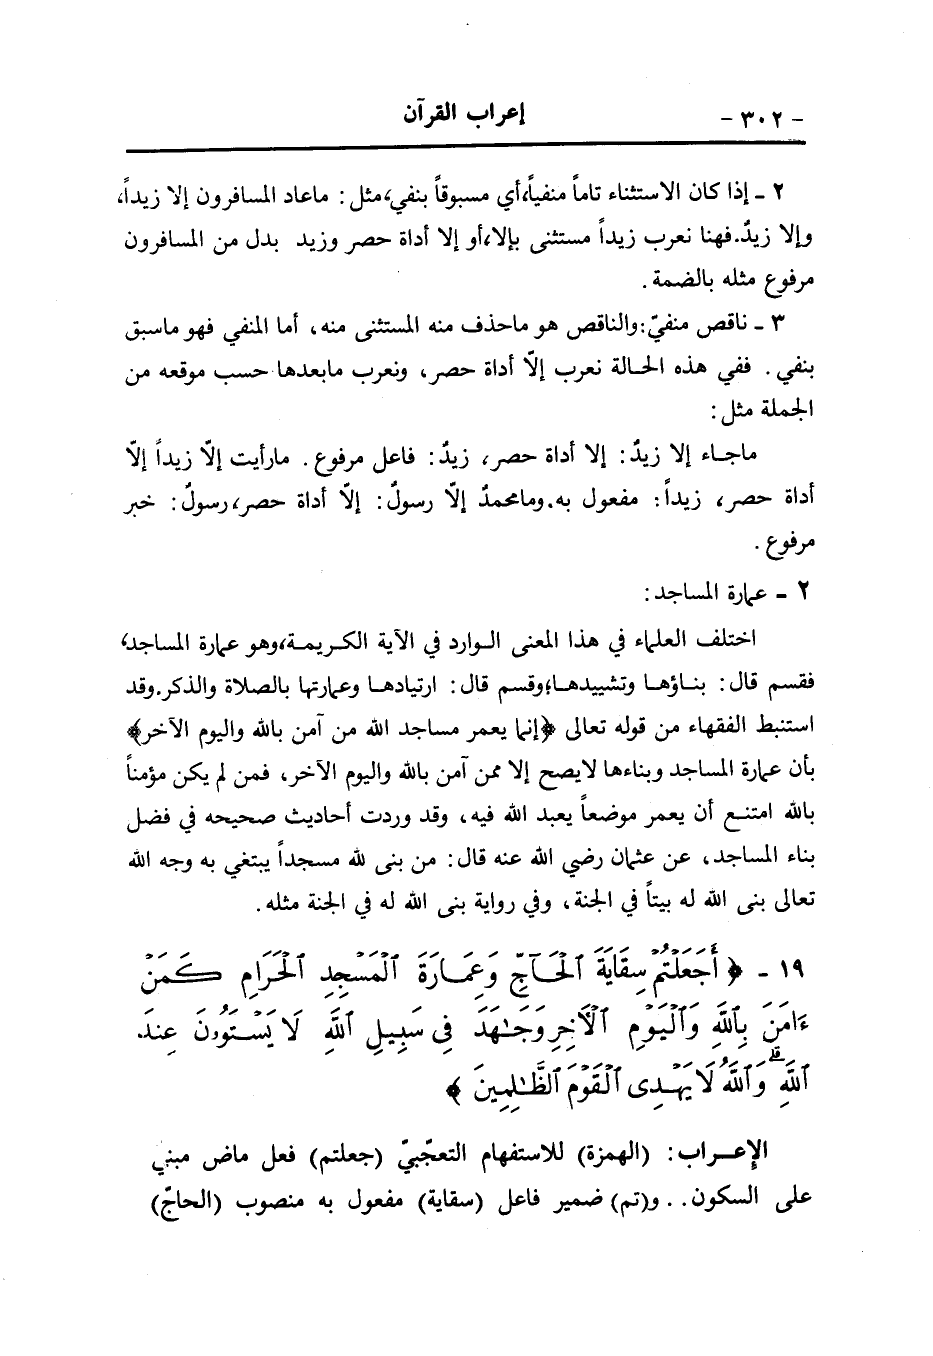 - ٣٠٢ -
إعراب القرآن
٢ - إذا كان الاستثناء تاماً منفياً،أي مسبوقاً بنفي،مثل: ماعاد المسافرون إلا زيداً،
وإلا زيدٌ.فهنا نعرب زيداً مستثنى بإلا،أو إلا أداة حصر وزيد بدل من المسافرون
مرفوع مثله بالضمة.
٣ - ناقص منفيّ:والناقص هو ماحذف منه المستثنى منه، أما المنفي فهو ماسبق
بنفي. ففي هذه الحالة نعرب إلّا أداة حصر، ونعرب مابعدها حسب موقعه من
الجملة مثل:
ماجاء إلا زيدٌ: إلا أداة حصر، زيدٌ: فاعل مرفوع. مارأيت إلّا زيداً إلّا
أداة حصر، زيداً: مفعول به.ومامحمدٌ إلّا رسولٌ: إلّا أداة حصر،رسولٌ: خبر
مرفوع.
٢ - عمارة المساجد:
اختلف العلماء في هذا المعنى الوارد في الآية الكريمة،وهو عمارة المساجد،
فقسم قال: بناؤها وتشييدها؛وقسم قال: ارتيادها وعمارتها بالصلاة والذكر.وقد
استنبط الفقهاء من قوله تعالى ﴿إنما يعمر مساجد الله من آمن بالله واليوم الآخر﴾
بأن عمارة المساجد وبناءها لايصح إلا ممن آمن بالله واليوم الآخر، فمن لم يكن مؤمناً
بالله امتنع أن يعمر موضعاً يعبد الله فيه، وقد وردت أحاديث صحيحه في فضل
بناء المساجد، عن عثمان رضي الله عنه قال: من بنى لله مسجداً يبتغي به وجه الله
تعالى بنى الله له بيتاً في الجنة، وفي رواية بنى الله له في الجنة مثله.
١٩ - ﴿ أَجَعَلْتُمْ سِقَايَةَ ٱلْحَآجِّ وَعِمَارَةَ ٱلْمَسْجِدِ ٱلْحَرَامِ كَمَنْ
ءَامَنَ بِٱللَّهِ وَٱلْيَوْمِ ٱلْأَخِرِ وَجَٰهَدَ فِي سَبِيلِ ٱللَّهِ لَا يَسْتَوُۥنَ عِندَ
ٱللَّهِ ۗ وَٱللَّهُ لَا يَهْدِى ٱلْقَوْمَ ٱلظَّٰلِمِينَ ﴾
الإعراب: (الهمزة) للاستفهام التعجّبيّ (جعلتم) فعل ماض مبني
على السكون.. و(تم) ضمير فاعل (سقاية) مفعول به منصوب (الحاجّ)